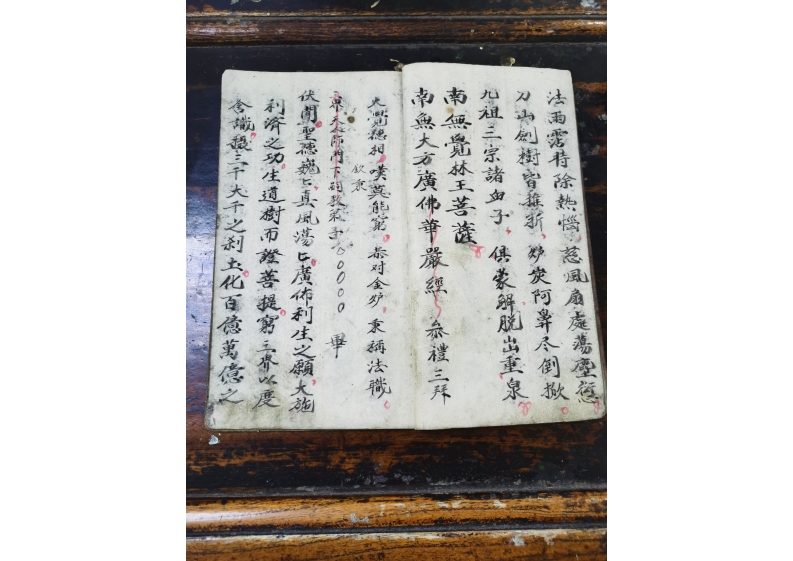 法雨霑時除熱惱 慈風扇處蕩塵愆
刀山劍樹皆摧折 炉炭阿鼻尽倒掀
九祖三宗諸血子 俱蒙解脱出重泉
南無覺林王菩薩
南無大方廣佛華嚴經 叅禮三拜
大覺德相 嘆莫能窮 恭对金炉 秉稱法職
欽稟
門下 教弟子 〇〇〇〇 畢
伏聞聖德巍匕真風蕩匕廣佈利生之願大施
利濟之功坐道樹而證菩提窮三界以度
含識攝三千大千之刹土化百億萬億之